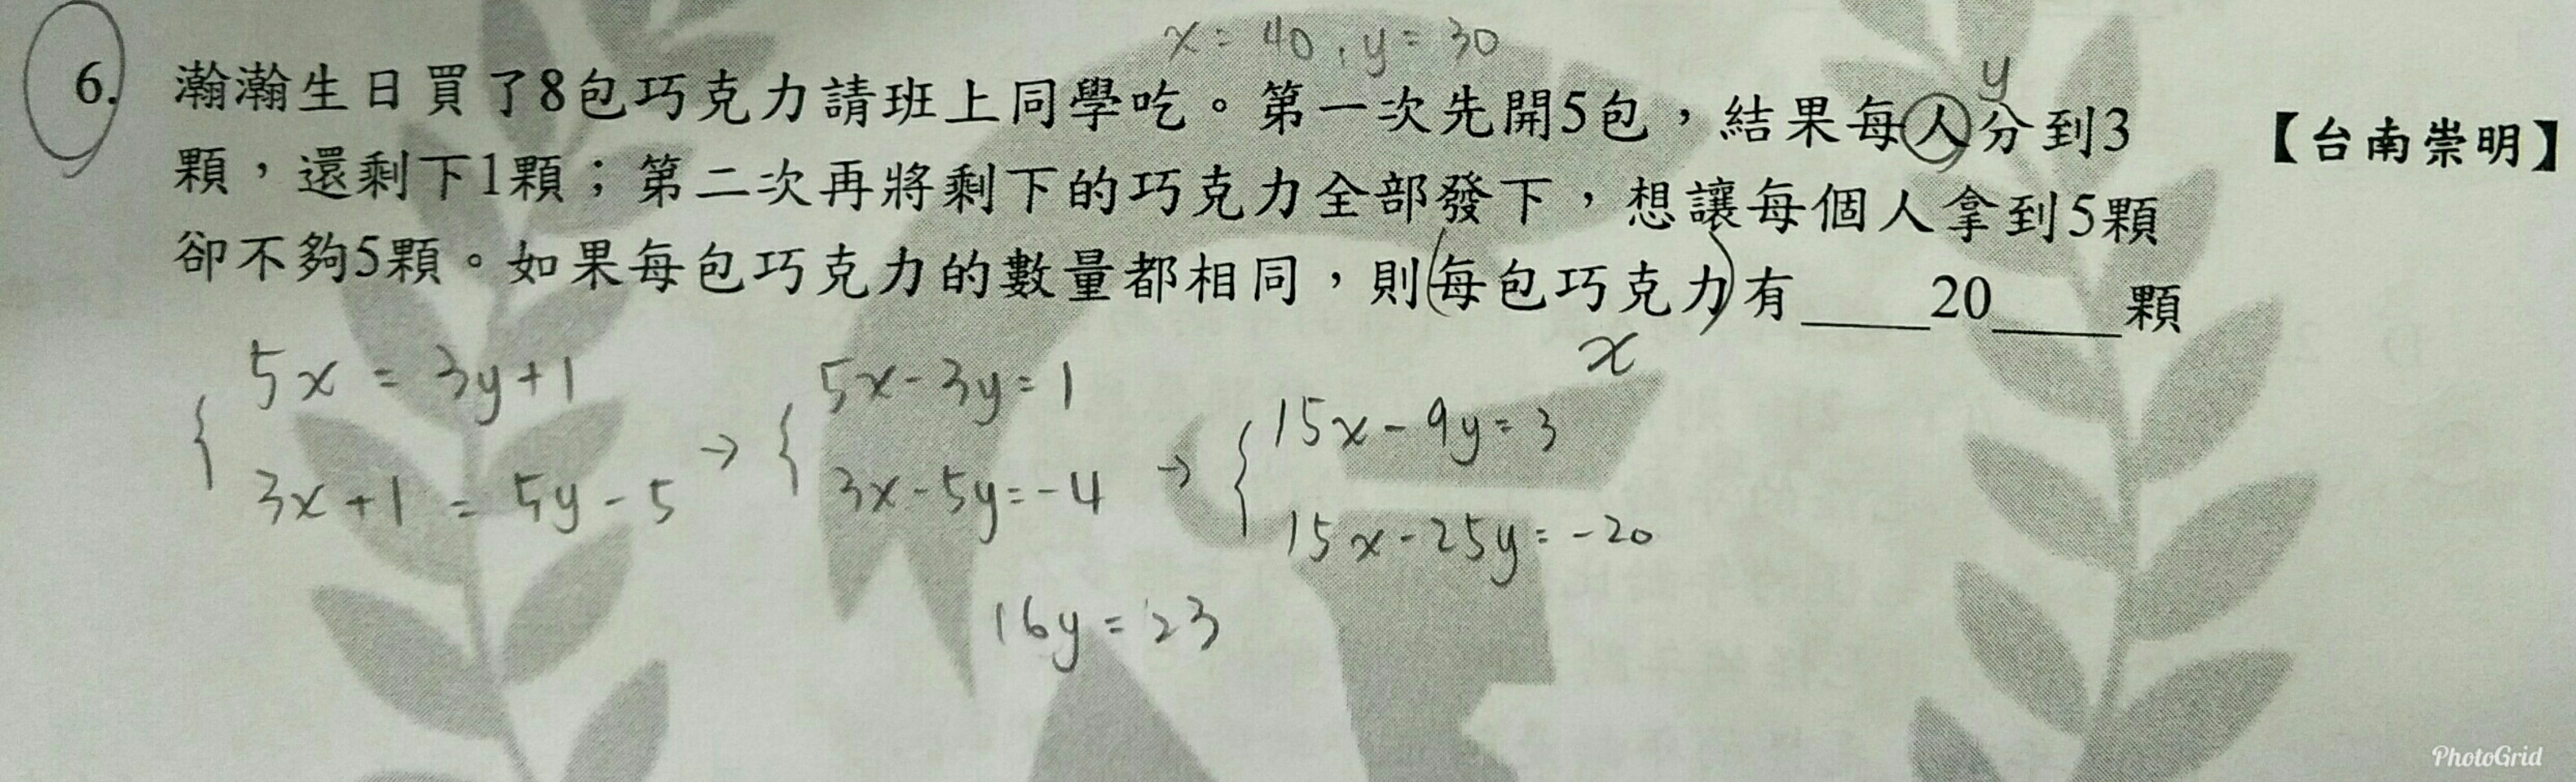 x = 40 , y = 30
y
6. 瀚瀚生日買了8包巧克力請班上同學吃。第一次先開5包，結果每人分到3
【台南崇明】
顆，還剩下1顆；第二次再將剩下的巧克力全部發下，想讓每個人拿到5顆
卻不夠5顆。如果每包巧克力的數量都相同，則(每包巧克力)有____20____顆
x
{ 5x = 3y+1 → { 5x-3y=1 → { 15x-9y=3
3x+1 = 5y-5 3x-5y=-4 15x-25y=-20
16y=23
PhotoGrid